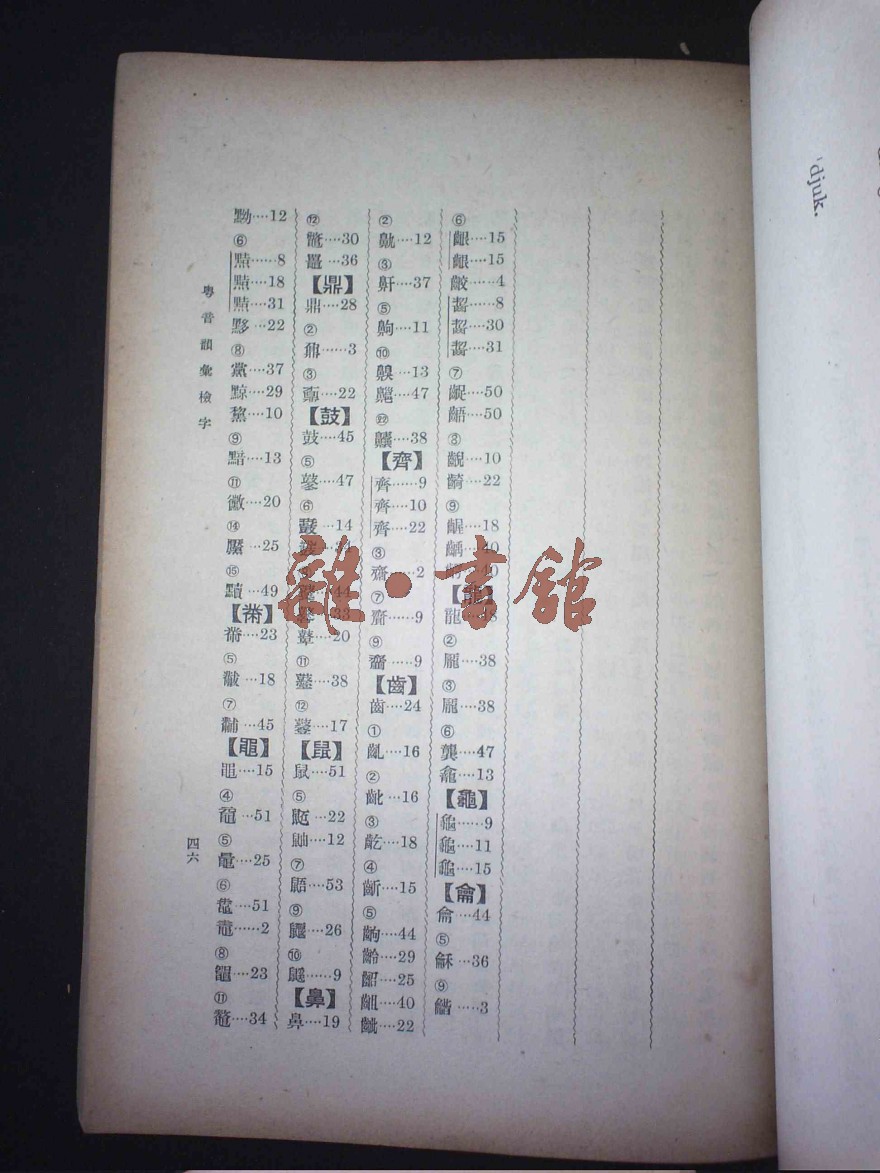 粵音韻彙檢字
四六
黝····12
⑥
黠······8
黠····18
黠····31
黟···22
⑧
黨····37
黥····29
黧····10
⑨
黯····13
⑪
黴····20
⑭
黶···25
⑮
黷····49
【黹】
黹····23
⑤
黻···18
⑦
黼···45
【黽】
黽····15
④
黿···51
⑤
鼂····25
⑥
鼃····51
鼄······2
⑧
鼅····23
⑪
鼇····34
⑫
鼈····30
鼉···36
【鼎】
鼎····28
②
鼐······3
③
鼒····22
【鼓】
鼓····45
⑤
鼕····47
⑥
鼖···14
⑪
鼟····38
⑫
鼟····17
【鼠】
鼠····51
⑤
鼫····22
鼬····12
⑦
鼯····53
⑨
鼴····26
⑩
鼷······9
【鼻】
鼻····19
②
鼽····12
③
鼾····37
⑤
齁····11
⑩
齅···13
齆····47
㉒
齉····38
【齊】
齊·····9
齊····10
齊····22
③
齋·····2
⑦
齎·····9
⑨
齏·····9
【齒】
齒····24
①
齔····16
②
齔···16
③
齕····18
④
齗····15
⑤
齣····44
齡····29
齠····25
齟····40
齜····22
⑥
齦····15
齦····15
齩······4
齧·····8
齧····30
齧····31
⑦
齪····50
齬····50
⑧
齯····10
齮····22
⑨
齷····18
齲····40
【龍】
龍···48
②
龐····38
③
龎····38
⑥
龔····47
龕····13
【龜】
龜·····9
龜····11
龜····15
【龠】
龠····44
⑤
龢····36
⑨
龤·····3
雜·書館
'djuk.